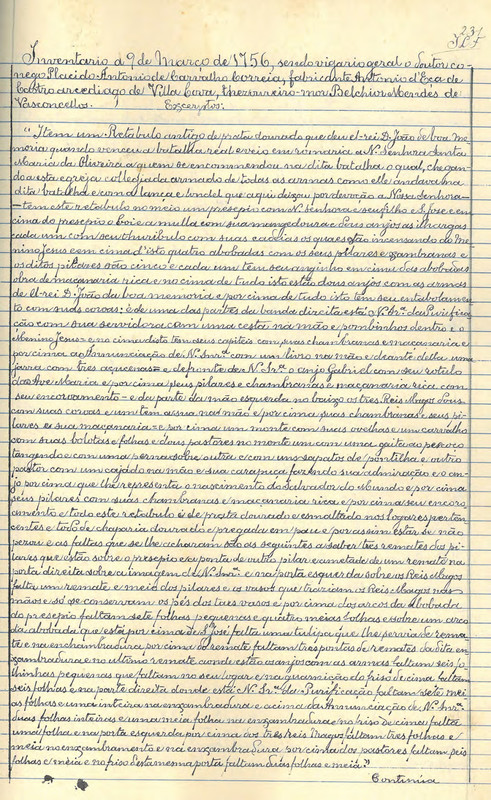 231
Inventario d 9 de Março de 1756, sendo vigario geral o Doutor co-
nego Placido Antonio de Carvalho Correia, fabricante Antonio d'Eça de
Castro arcediago de Villa Cova, thezoureiro-mor Belchior Mendes de
Vasconcellos. Excerptos:
"Item um Retabulo antigo de prata dourado que deu el-rei D. João de boa me-
moria quando venceu a batalha real e veio em romaria a N. Senhora Santa
Maria da Oliveira a quem se encommendou na dita batalha o qual, chegan-
do a esta egreja collegiada armado de todas as armas como elle andava na
dita batalha e com a lança e loudel que aqui deixou por devoção a Nossa Senhora-
-tem este retabulo no meio um presepio com N. Senhora e seu filho e S. José e em
cima do presepio o boi e a mulla com sua mangedoura e dous anjos as ilhargas
cada um com seu thuribulo com suas cadeias os quaes estão incensando o Me-
nino Jesus e em cima d'isto quatro abobadas com os seus pilares e enxambranas e
os ditos pilares são cinco e cada um tem seu anjinho em cima das abobadas
obra de maçanaria rica e no cima de tudo isto estão dous anjos com as armas
de el-rei D. João da boa memoria e por cima de tudo isto tem seu entabolamen-
to com suas coroas: e de uma das partes da banda direita está a N. Snr.ª da Purifica-
ção com sua servidora com uma cesta na mão e pombinhos dentro e o
Menino Jesus e no cimo disto tem seus capiteis com suas chambranas e maçanaria e
por cima a Annunciação de N. Snr.ª com um livro na mão e deante della uma
jarra com tres açucenas e defronte de N. Snr.ª o anjo Gabriel com seu rotulo
das Ave Maria e por cima seus pilares e chambranas e maçanaria rica com
seu encoroamento - e da parte da mão esquerda no baixo os tres Reis Magos dous
com suas coroas e um tem a sua na mão e por cima suas chambranas e seus pi-
lares e sua maçanaria - e por cima um monte com suas ovelhas e um carvalho
com suas bolotas e folhas e dous pastores no monte um com uma gaita ao pescoço
tangendo e com uma perna sobre outra e com uns sapatos de pontilha e outro
pastor com um cajado na mão e sua carapuça fazendo sua admiração e o an-
jo por cima que lhe representa o nascimento do Salvador do Mundo e por cima
seus pilares com suas chambranas e maçanaria rica e por cima seu encoro-
amento e todo este retabulo é de prata dourado e esmaltado nos logares perten-
centes e todo de chaparia dourado e pregada em pau e por assim estar se não
pesou e as faltas que se lhe acharam são as seguintes a saber tres remates dos pi-
lares que estão sobre o presepio e a ponta de outro pilar e ametade de um remate na
porta direita sobre a imagem de N. Snr.ª e na porta esquerda sobre os Reis Magos
falta um remate e meio dos pilares e os vasos que traziam os Reis Magos nas
mãos e só se conservam os pés dos tues vasos e por cima dos arcos da abobada
do presepio faltam sete folhas pequenas e quatro meias folhas e sobre um arco
da abobada que está por cima de S. José falta uma tulipa que lhe servia de rema-
te e na enchambradura por cima do remate faltam tres pontas de remates da dita en-
xambradura e no ultimo remate aonde estão os anjos com as armas faltam seis fo-
lhinhas pequenas que faltam no seu logar e na guarnição do friso de cima faltam
seis folhas e na parte direita donde está N. Snr.ª da Purificação faltam sete mei-
as folhas e uma inteira na enxambradura e acima da Annunciação de N. Snr.ª
duas folhas inteiras e uma meia folha na enxambradura e no friso de cima falta
uma folha e na porta esquerda por cima dos tres reis Magos faltam tres folhas e
meia no enxambramento e na enxambradura por cima dos pastores faltam seis
folhas e meia e no friso desta mesma porta faltam duas folhas e meia."
Continúa